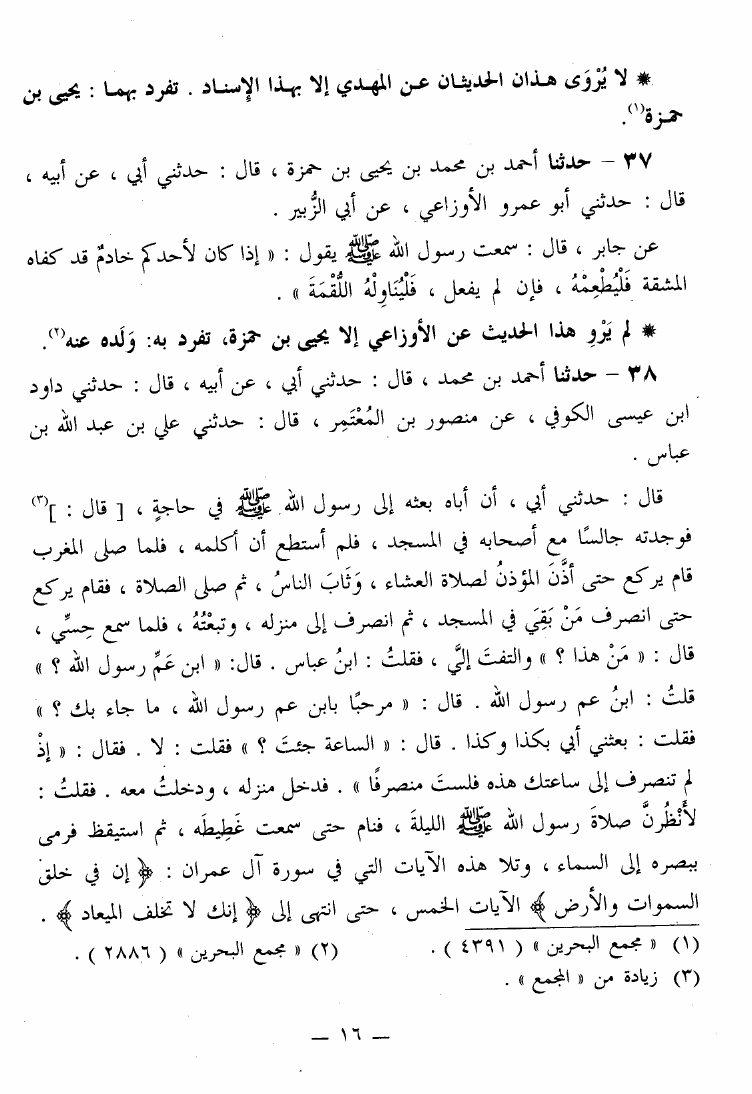 * لا يُرْوَى هذان الحديثان عن المهدي إلا بهذا الإسناد . تفرد بهما : يحيى بن
حمزة(١).
٣٧ – حدثنا أحمد بن محمد بن يحيى بن حمزة ، قال : حدثني أبي ، عن أبيه ،
قال : حدثني أبو عمرو الأوزاعي ، عن أبي الزُّبير .
عن جابر ، قال : سمعت رسول الله ﷺ يقول : « إذا كان لأحدكم خادمٌ قد كفاه
المشقة فَلْيُطْعِمْهُ ، فإن لم يفعل ، فَلْيُنَاوِلْهُ اللُّقْمَةَ » .
* لم يَرْوِ هذا الحديث عن الأوزاعي إلا يحيى بن حمزة، تفرد به: وَلَده عنه(٢).
٣٨ – حدثنا أحمد بن محمد ، قال : حدثني أبي ، عن أبيه ، قال : حدثني داود
ابن عيسى الكوفي ، عن منصور بن المُعْتَمِر ، قال : حدثني علي بن عبد الله بن
عباس .
قال : حدثني أبي ، أن أباه بعثه إلى رسول الله ﷺ في حاجةٍ ، [ قال : ](٣)
فوجدته جالسًا مع أصحابه في المسجد ، فلم أستطع أن أكلمه ، فلما صلى المغرب
قام يركع حتى أذَّنَ المؤذنُ لصلاة العشاء ، وَثَابَ الناسُ ، ثم صلى الصلاة ، فقام يركع
حتى انصرف مَنْ بَقِيَ في المسجد ، ثم انصرف إلى منزله ، وتبعْتُهُ ، فلما سمع حِسِّي ،
قال : « مَنْ هذا ؟ » والتفتَ إليَّ ، فقلتُ : ابنُ عباس . قال: « ابن عَمِّ رسول الله ؟ »
قلتُ : ابنُ عم رسول الله . قال : « مرحبًا بابن عم رسول الله ، ما جاء بك ؟ »
فقلت : بعثني أبي بكذا وكذا . قال : « الساعة جئتَ ؟ » فقلت : لا . فقال : « إذْ
لم تنصرف إلى ساعتك هذه فلستَ منصرفًا » . فدخل منزله ، ودخلتُ معه . فقلتُ :
لأَنْظُرنَّ صلاةَ رسول الله ﷺ الليلةَ ، فنام حتى سمعت غَطِيطَه ، ثم استيقظ فرمى
ببصره إلى السماء ، وتلا هذه الآيات التي في سورة آل عمران : ﴿ إن في خلق
السموات والأرض ﴾ الآيات الخمس ، حتى انتهى إلى ﴿ إنك لا تخلف الميعاد ﴾ .
(١) « مجمع البحرين » ( ٤٣٩١ ) . (٢) « مجمع البحرين » ( ٢٨٨٦ ) .
(٣) زيادة من « المجمع » .
– ١٦ –